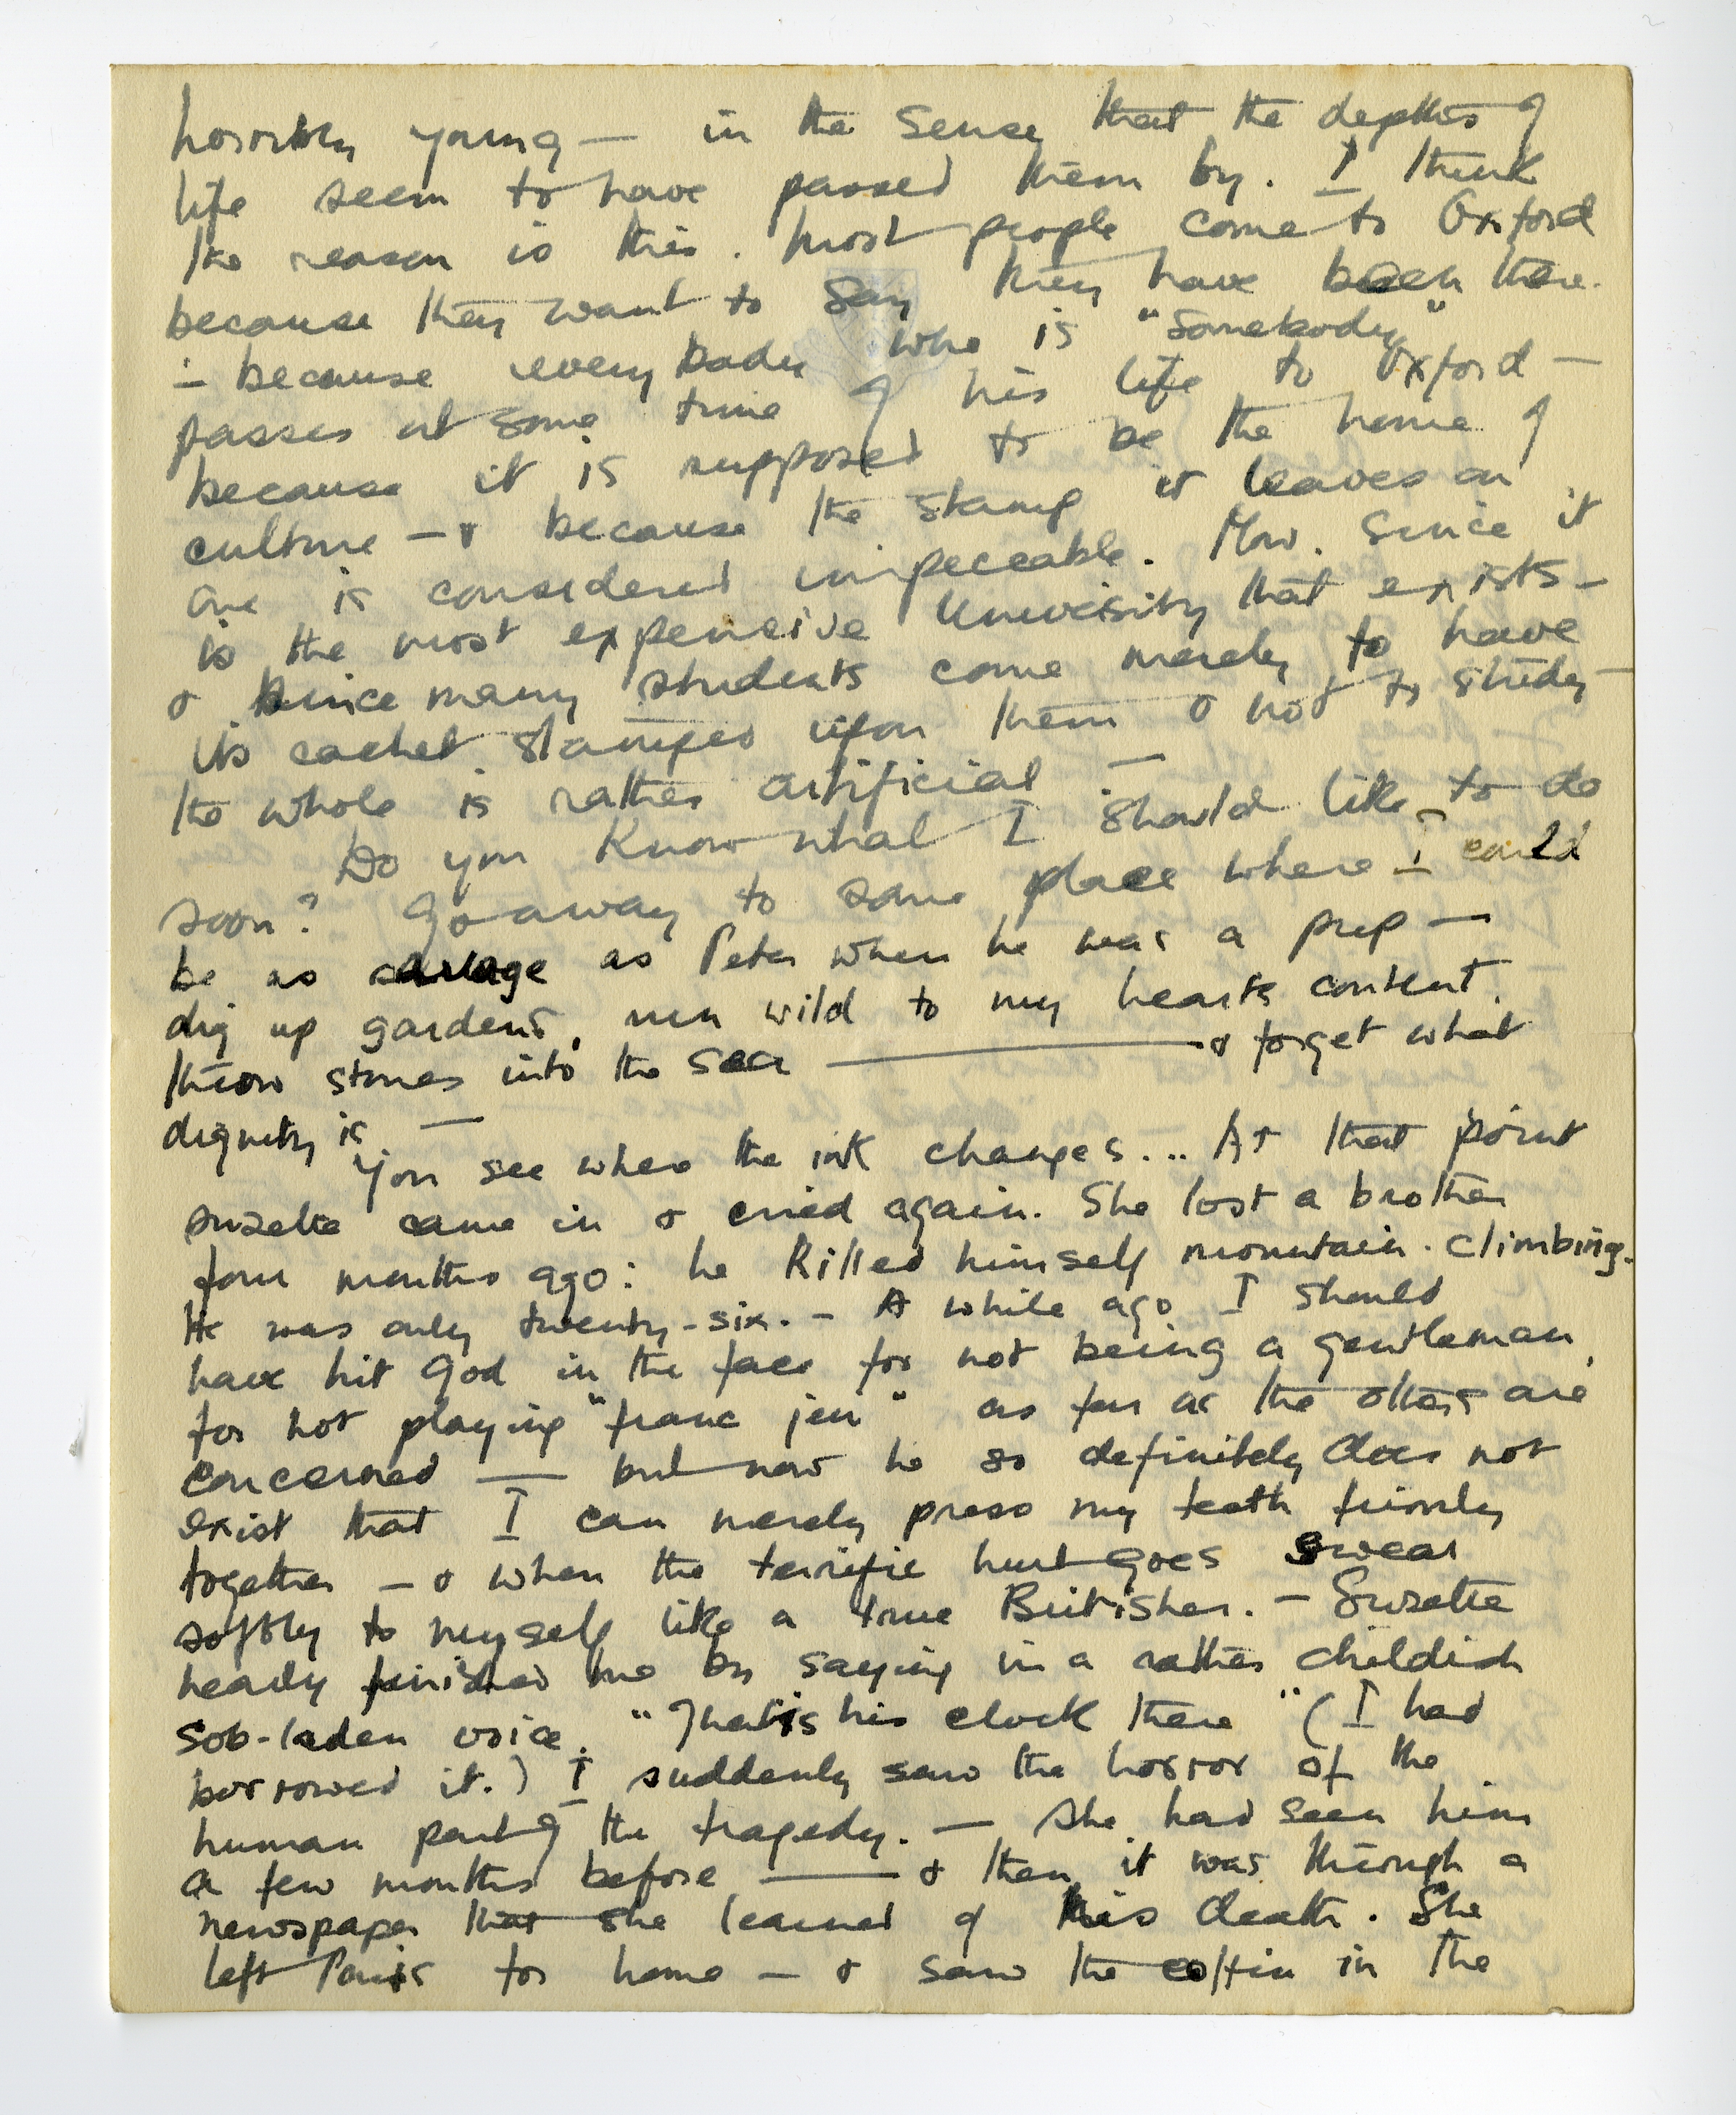 horribly young — in the sense that the depths of
life seem to have passed them by. I think
the reason is this. Most people come to Oxford
because they want to say they have been there.
— because everybody who is "somebody"
passes at some time of his life to Oxford —
because it is supposed to be the home of
culture — & because the stamp it leaves on
one is considered impeccable. Now. Since it
is the most expensive University that exists —
& since many students come merely to have
its cachet stamped upon them & not to study —
the whole is rather artificial —
Do you know what I should like to do
soon? Go away to some place where I could
be as savage as Peter when he was a prep —
dig up gardens, run wild to my hearts content,
throw stones into the sea — & forget what
dignity is. —
You see where the ink changes... At that point
Suzette came in & cried again. She lost a brother
four months ago: he killed himself mountain-climbing.
He was only twenty-six. — A while ago I should
have hit God in the face for not being a gentleman,
for not playing "franc jeu" as far as the others are
concerned — but now he so definitely does not
exist that I can merely press my teeth firmly
together — & when the terrific hurt goes swear
softly to myself like a true Britisher. — Suzette
nearly finished me by saying in a rather childish
sob-laden voice. "That is his clock there" (I had
borrowed it.) I suddenly saw the horror of the
human part of the tragedy. — She had seen him
a few months before — & then it was through a
newspaper that she learned of his death. She
left Paris for home — & saw the coffin in the